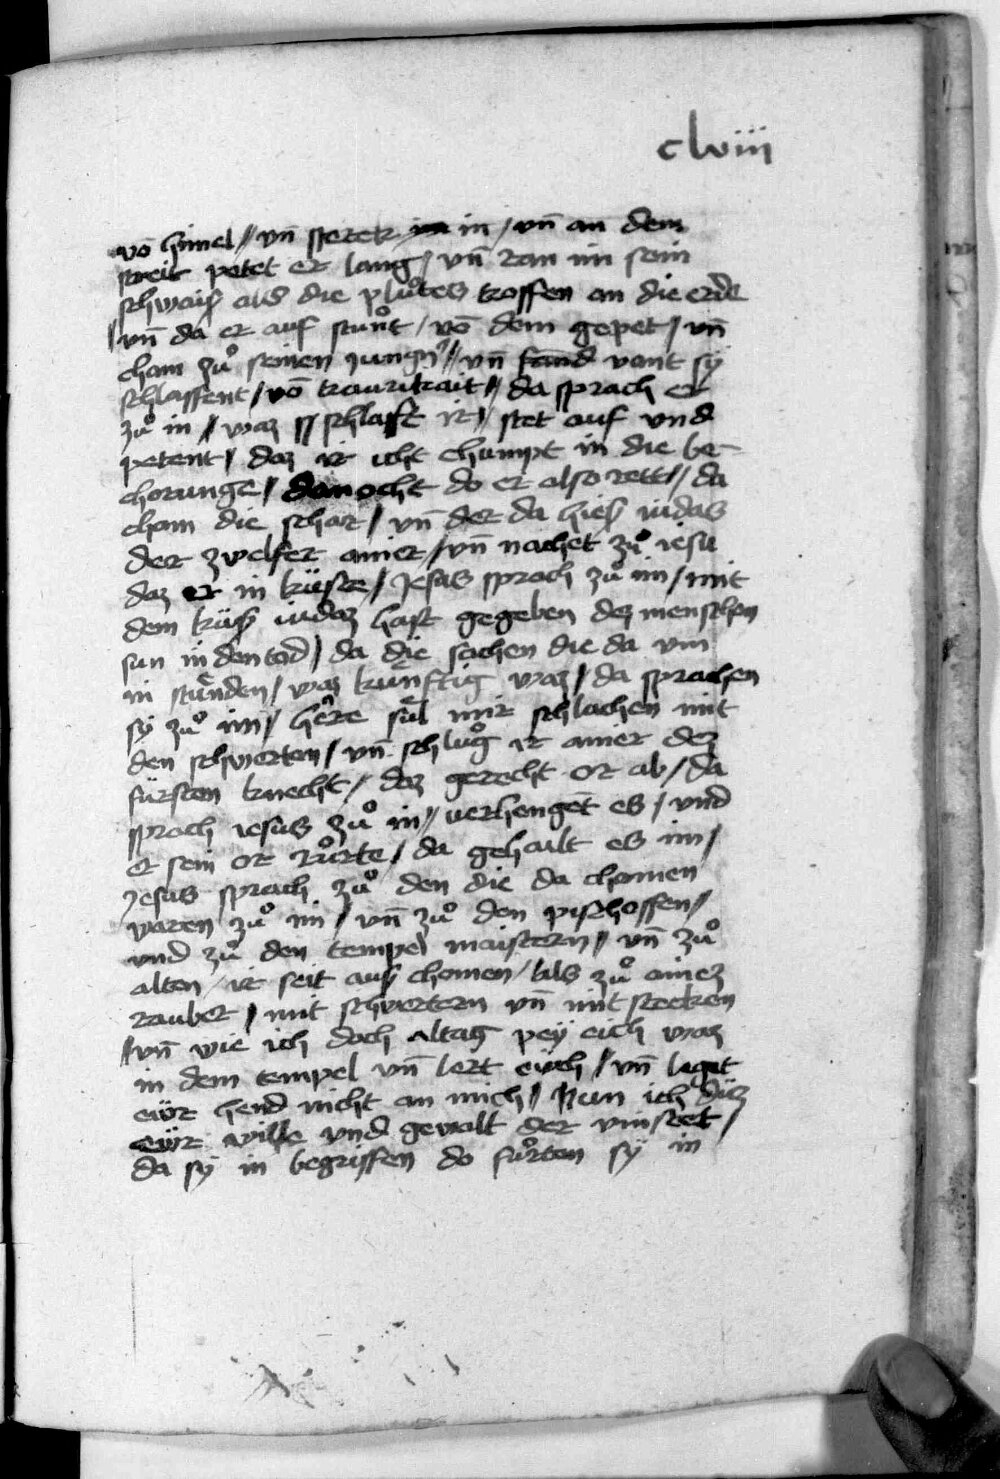 clviii
vō himel // vn̄ sterck in / vn̄ an dem
streit petet er lang / vn̄ ran im sein
schwaiſ als die plůtes troffen an die erde
/ vn̄ da er auf stůnt / vō dem gepet / vn̄
cham zů seinen jungn̄ // vn̄ fand vant sÿ
schlaffent / vō traurikait // da sprach er
zů in / waz schlafft ir // stet auf vnd
petent / daz ir icht chumpt in die be-
chorunge / dannocht do er also rett // da
cham die schar / vn̄ der da hieſ iudas
der zwelfer ainer / vn̄ nachet zů iesu
daz er in küste / Jesus sprach zů im / mit
dem küſ iudaz hast gegeben dez menschen
sun in den tod / da die sachen die da vm
in stůnden / waz künftig waz / da sprachen
sÿ zů im / here sůl mir schlachen mit
den schwerten / vn̄ schlůg ir ainer dez
fürsten knecht / daz gerecht or ab / da
sprach iesus zů in // verhenget es / vnd
er sein or růrte / da gehailt es im /
Jesus sprach zů den die da chomen
waren zů im / vn̄ zů den pischoffen /
vnd zů den tempel maistern / vn̄ zů
alten / ir seit auſ chomen / als zů ainez
rauber / mit schwertern vn̄ mit stecken
/ vn̄ wie ich doch altag peÿ eüch waz
in dem tempel vn̄ lert eüch / vn̄ legt
eür hend nicht an mich // Nun ich düz
eür wille vnd gewalt der vinstet /
da sÿ in begriffen do fůrten sÿ in